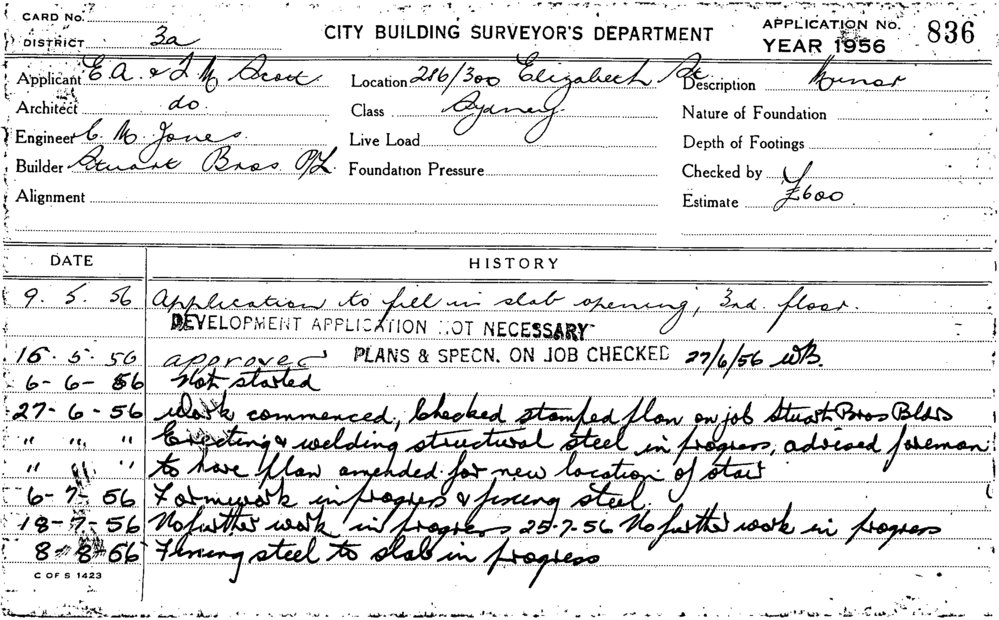 CARD No.
DISTRICT 3a
CITY BUILDING SURVEYOR'S DEPARTMENT
APPLICATION No. 836
YEAR 1956
Applicant E. A. & T. M. Scott
Location 286/300 Elizabeth St
Description Minor
Architect do.
Class Sydney.
Nature of Foundation
Engineer C. M. Jones.
Live Load
Depth of Footings
Builder Stuart Bros. P/L
Foundation Pressure
Checked by
Alignment
Estimate £600
DATE HISTORY
9. 5. 56 Application to fill in slab opening, 3rd. floor.
DEVELOPMENT APPLICATION NOT NECESSARY
16. 5. 56 approved PLANS & SPECN. ON JOB CHECKED 27/6/56 WB.
6-6-56 Not started
27-6-56 Work commenced, Checked stamped plan on job Stuart Bros Bldrs
" " " Erecting & welding structural steel in progress, advised foreman
" " to have plan amended for new location of stair
6-7-56 Formwork in progress & fixing steel.
18-7-56 No further work in progress 25-7-56 No further work in progress
8-8-56 Fixing steel to slab in progress
C OF S 1423